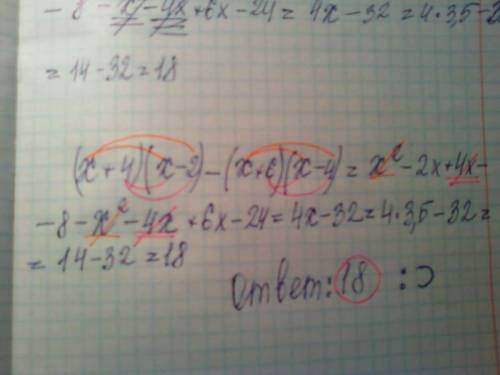 - 8 - x² - 4x + 6x - 24 = 4x - 32 = 4 · 3,5 - 3
= 14 - 32 = 18
(x + 4)(x - 2) - (x + 6)(x - 4) = x² - 2x + 4x -
- 8 - x² - 4x + 6x - 24 = 4x - 32 = 4 · 3,5 - 32 =
= 14 - 32 = 18
Ответ: 18 :)